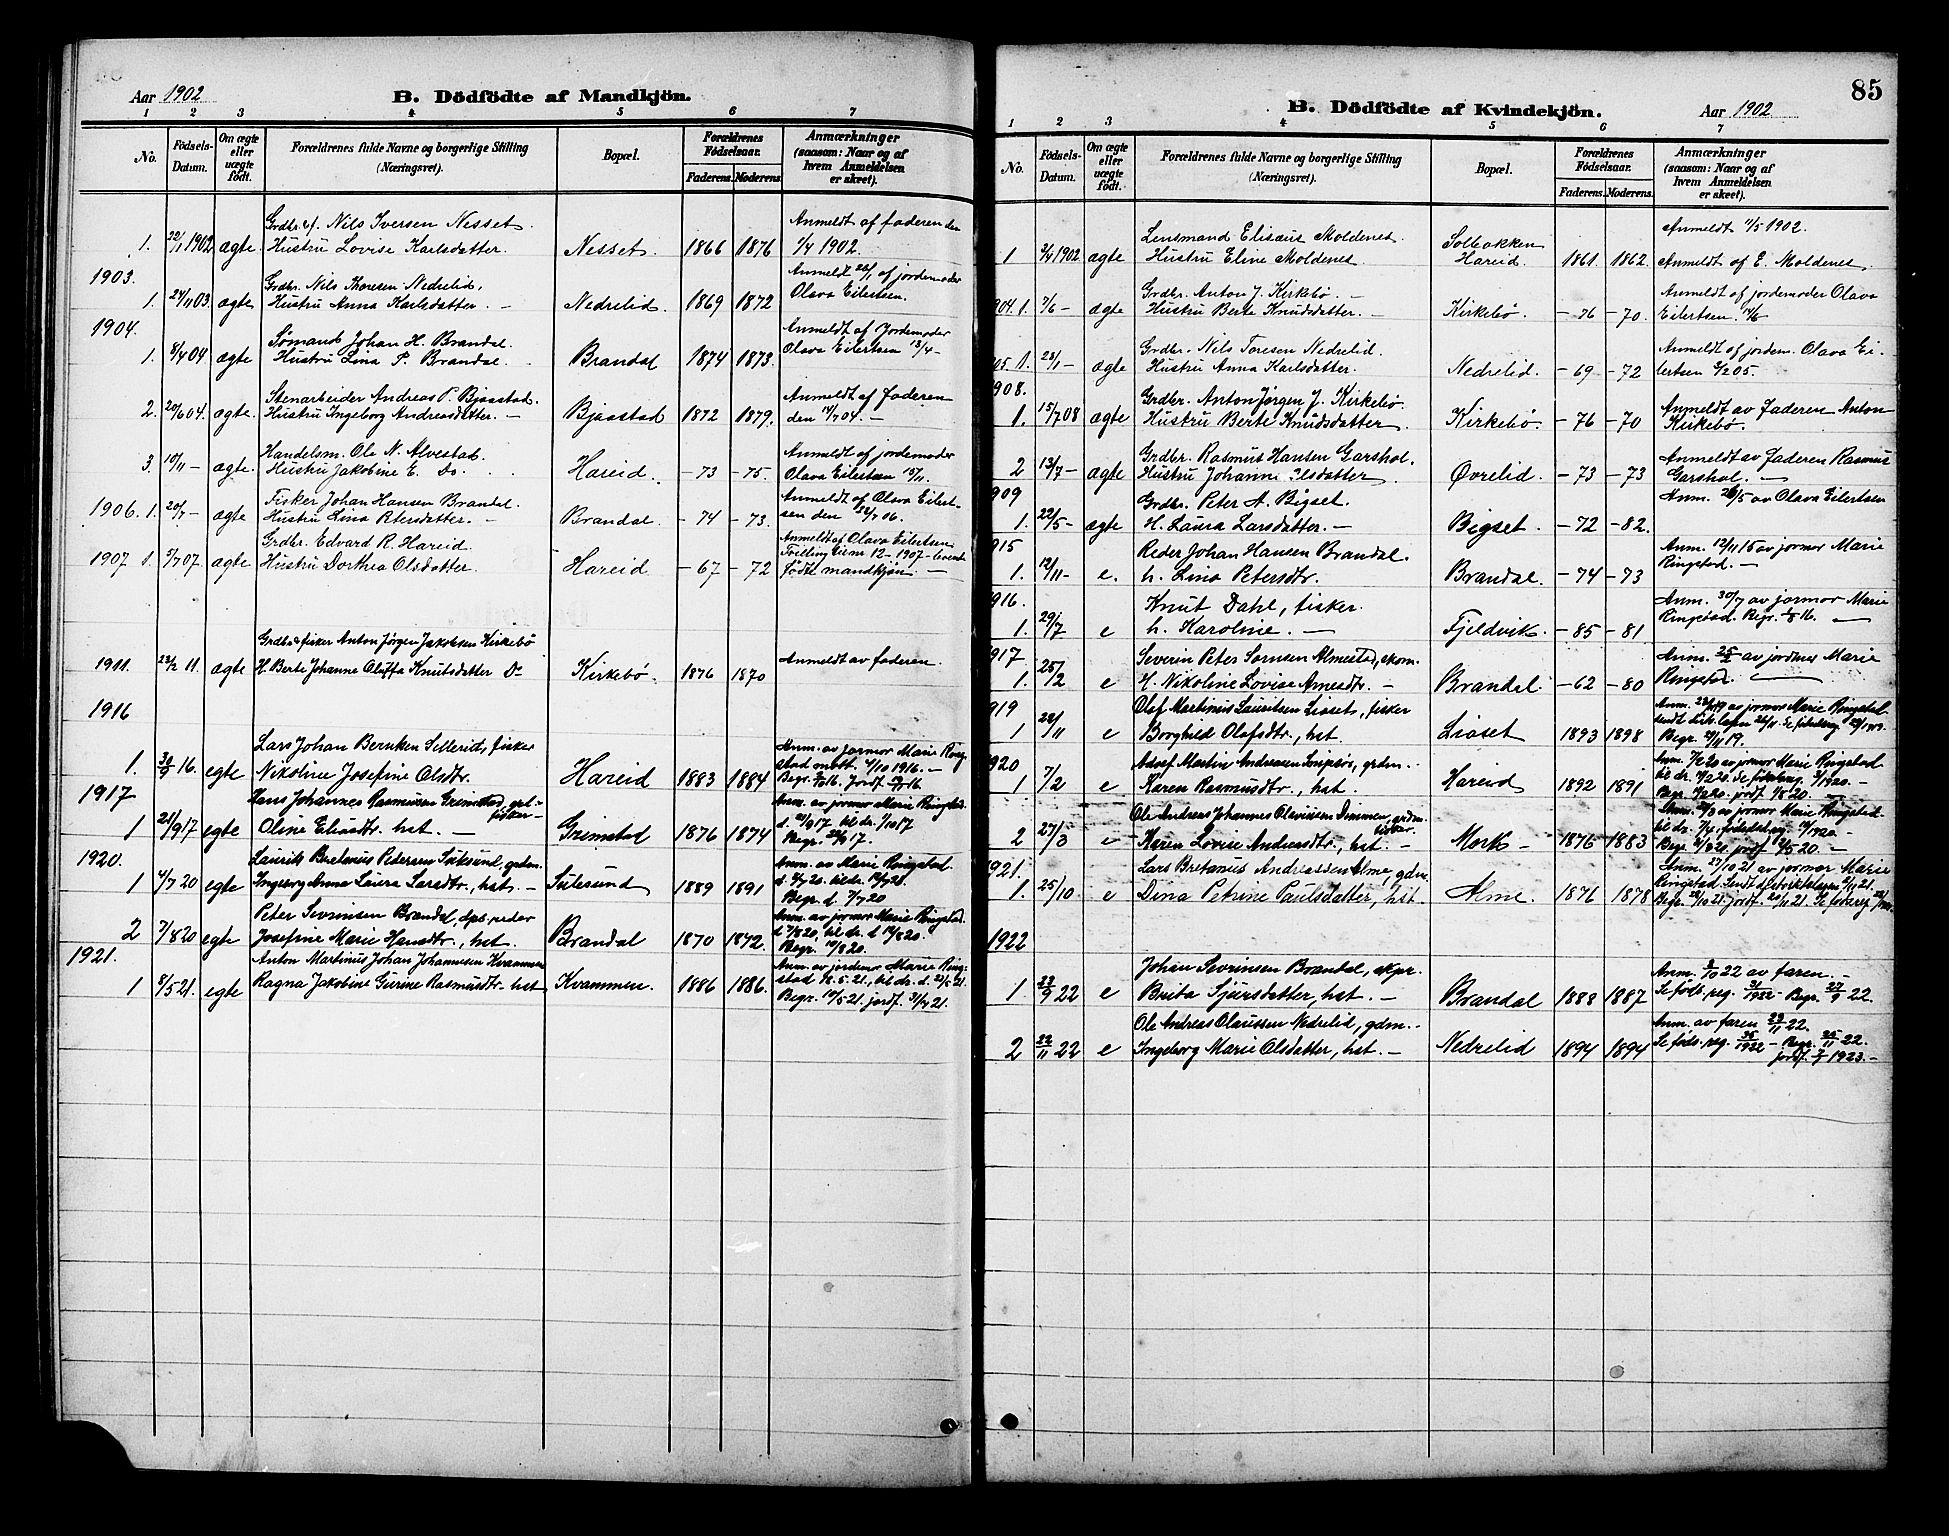 Aar 1902
B. Dödfödte af Mandkjön.
1 2 3 4 5 6 7
No.
Födsels-Datum.
Om ægte eller uægte födt.
Forældrenes fulde Navne og borgerlige Stilling (Næringsvei).
Bopæl.
Forældrenes Födselsaar.
Faderens. Moderens.
Anmærkninger (saasom: Naar og af hvem Anmeldelsen er skeet).
Grdbr. Nils Iversen Nesset. Anmeldt af faderen den
1. 22/1 1902 ægte Hustru Lovise Karlsdatter. Nesset 1866 1876 1/4 1902.
1903. Grdbr. Nils Thoresen Nedrelid. Anmeldt 26/1 af jordemoder
1. 24/11 03. ægte Hustru Anna Karlsdatter. — Nedrelid. 1869 1872 Olava Eilertsen.
1904. Sømand Johan H. Brandal. Anmeldt af Jordemoder
1. 8/4 04 ægte Hustru Lina P. Brandal. Brandal 1874 1873. Olava Eilertsen 13/4 —
Stenarbeider Andreas P. Bjaastad. Anmeldt af Faderen
2. 20/6 04. ægte. Hustru Ingeborg Andreasdatter. — Bjaastad 1872 1879. den 14/7 04. —
Handelsm. Ole N. Alvestad. Anmeldt af jordemoder
3. 10/11 — ægte. Hustru Jakobine E. Do. Hareid. — 73 — 75. Olava Eilertsen 17/11.
Fisker Johan Hansen Brandal. Anmeldt af Olava Eilert-
1906. 1. 20/7 — ægte Hustru Lina Petersdatter. — Brandal. — 74 — 73. sen den 22/7 06.
Grdbr. Edvard R. Hareid. Anmeldt af Olava Eilertsen.
Tvilling til nr 12 - 1907 - levende
1907 1. 3/7 07. ægte Hustru Dorthea Olsdatter. Hareid — 67 — 72 født mandkjøn. —
Grdbr & fisker Anton Jørgen Jakobsen Kirkebø
1911. 23/2 11. ægte H. Berte Johanne Oluffa Knutsdatter Do Kirkebø. 1876 1870 Anmeldt av faderen.
1916
Lars Johan Bernken Sellerid, fisker Anm. av jormor Marie Ring-
stad mott. 4/10 1916. —
1. 30/9 16. egte Nikoline Josefine Olsdtr. Hareid 1883 1884
1917 Hans Johannes Rasmussen Grimstad, Anm. av jormor Marie Ringstad.
1 21/9 17 egte Oline Eliasdtr. hst. — Grimstad 1876 1874
1920. Laurits Bretanus Pedersen Sulesund, grdm. Anm. av Marie Ringstad.
1 4/7 20 egte Ingeborg Anna Laura Larsdtr., hst. — Sulesund 1889 1891 Begr. d. 7/7 20
Peter Sevrinsen Brandal, dps. reder Anm. av jormor Marie Ringstad.
2 7/8 20 egte Josefine Marie Hansdtr., hst. Brandal 1870 1872. Begr. 10/8 20.
1921. Anton Martinus Johan Johannesen Kvammen Anm. av jordmor Marie Ring-
1 8/5 21. egte Ragna Jakobine Gurine Rasmusdtr. hst Kvammen. 1886 1886. stad 18.5.21, til dr. d. 21/5 21.
Begr. 14/5 21. jordf. 31/7 21.
85
B. Dödfödte af Kvindekjön.
Aar 1902
1 2 3 4 5 6 7
No.
Födsels-Datum.
Om ægte eller uægte födt.
Forældrenes fulde Navne og borgerlige Stilling (Næringsvei).
Bopæl.
Forældrenes Födselsaar.
Faderens. Moderens.
Anmærkninger (saasom: Naar og af hvem Anmeldelsen er skeet).
Lensmand Elisæus Moldenes. Solbakken Anmeldt 11/5 1902.
1 2/4 1902 ægte Hustru Eline Moldenes. Hareid. 1861. 1862. Anmeldt af E. Moldenes.
Grdbr. Anton J. Kirkebø. — Anmeldt af jordemoder Olava
904. 1. 7/6 — ægte Hustru Berte Knudsdatter. — Kirkebø. — 76 — 70. Eilertsen. 14/6
Grdbr. Nils Toresen Nedrelid. Anmeldt af jordem. Olava Ei-
05. 1. 28/1 — ægte Hustru Anna Karlsdatter. Nedrelid. — 69 — 72 lertsen 4/2 05.
908. Grdbr. Anton Jørgen J. Kirkebø. Anmeldt av faderen Anton
1. 15/7 08 ægte Hustru Berte Knudsdatter Kirkebø. — 76 — 70 Kirkebø.
Grdbr. Rasmus Hansen Garshol. Anmeldt av faderen Rasmus
2 13/7 — ægte Hustru Johanne Ilsdatter. Øvrelid — 73 — 73 Garshol. —
909 Grdbr. Peter A. Bigset. Anm. 26/5 av Olava Eilertsen
1. 22/5 — ægte H. Laura Larsdatter. — Bigset. — 72 — 82.
915 Reder Johan Hansen Brandal. Anm. 12/11 15 av jormor Marie
1. 12/11 — e. h. Lina Petersdtr. Brandal. — 74 — 73 Ringstad. —
916. Knut Dahl, fisker. Anm. 30/7 av jormor Marie
1. 29/7 e h. Karoline. — Fjeldvik. — 85 — 81 Ringstad. Begr. 1/8 16. —
917 Severin Peter Sørnsen Almestad, skom. Anm. 25/2 av jordmor Marie
1. 25/2 e H. Nikoline Lovise Arnesdtr. — Brandal. — 62 — 80 Ringstad. —
919 Olaf Martinus Lauritsen Liaset, fisker
1 22/11 e Borghild Olafsdtr., hst. Liaset 1893 1898
920 Adolf Martin Andreasen Snipsør, grdm. — Anm. 7/2 20 av jormor Marie Ringstad
1 7/2 e Karen Rasmusdtr., hst. — Hareid 1892 1891
Ole Andreas Johannes Olaviusen Dimmen, grdm. fisker. Anm. av jormor Marie Ringstad
2 27/3 e Karen Lovise Andreasdtr., hst. — Mork — 1876 1883
921. Lars Bretanus Andreassen Alme, gdm. Anm. 27/10 21 av jormor Marie
1. 25/10 e Dina Petrine Paulsdatter, hst. Alme. 1876 1878 Ringstad.
1922
Johan Sevrinsen Brandal, skpr. Anm. 2/10 22 av faren. —
1. 22/9 22 e Brita Sjursdatter, hst. — Brandal 1888 1887 Se føds. reg. 31/1922 — Begr. 27/9 22.
Ole Andreas Olaussen Nedrelid, gdm. — Anm. av faren 23/11 22.
2 22/11 22 e Ingeborg Marie Olsdatter, hst. — Nedrelid 1894 1894 Se føds. reg. 35/1922 — Begr. 25/11 22.